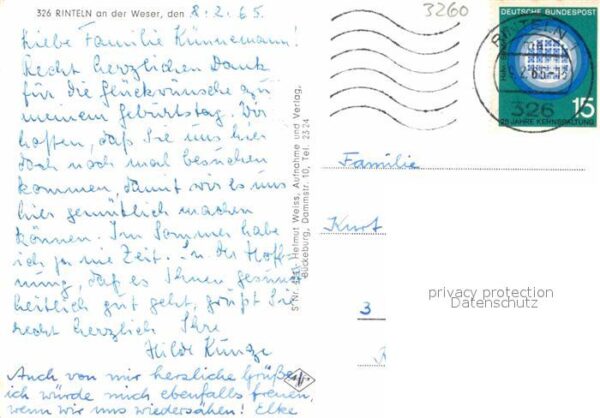 326 RINTELN an der Weser, den 8.2.65.
Liebe Familie Künnemann!
Recht herzlichen Dank
für die Glückwünsche zu
meinem Geburtstag. Wir
hoffen, daß Sie uns hier
doch noch mal besuchen
kommen, damit wir es uns
hier gemütlich machen
können. Im Sommer habe
ich ja nie Zeit. In der Hoff=
nung, daß es Ihnen gesund
heitlich gut geht, grüßt Sie
recht herzlich Ihre
Hilde Kunze
Auch von mir herzliche Grüße,
ich würde mich ebenfalls freuen,
wenn wir uns wiedersähen! Elke
Helmut Weiss, Aufnahme und Verlag,
Bückeburg, Dammstr. 10, Tel. 23 24
3260
DEUTSCHE BUNDESPOST
15
25 JAHRE KERNSPALTUNG
RINTELN 1
.2.65-15
326
Familie
Kurt
3
privacy protection
Datenschutz